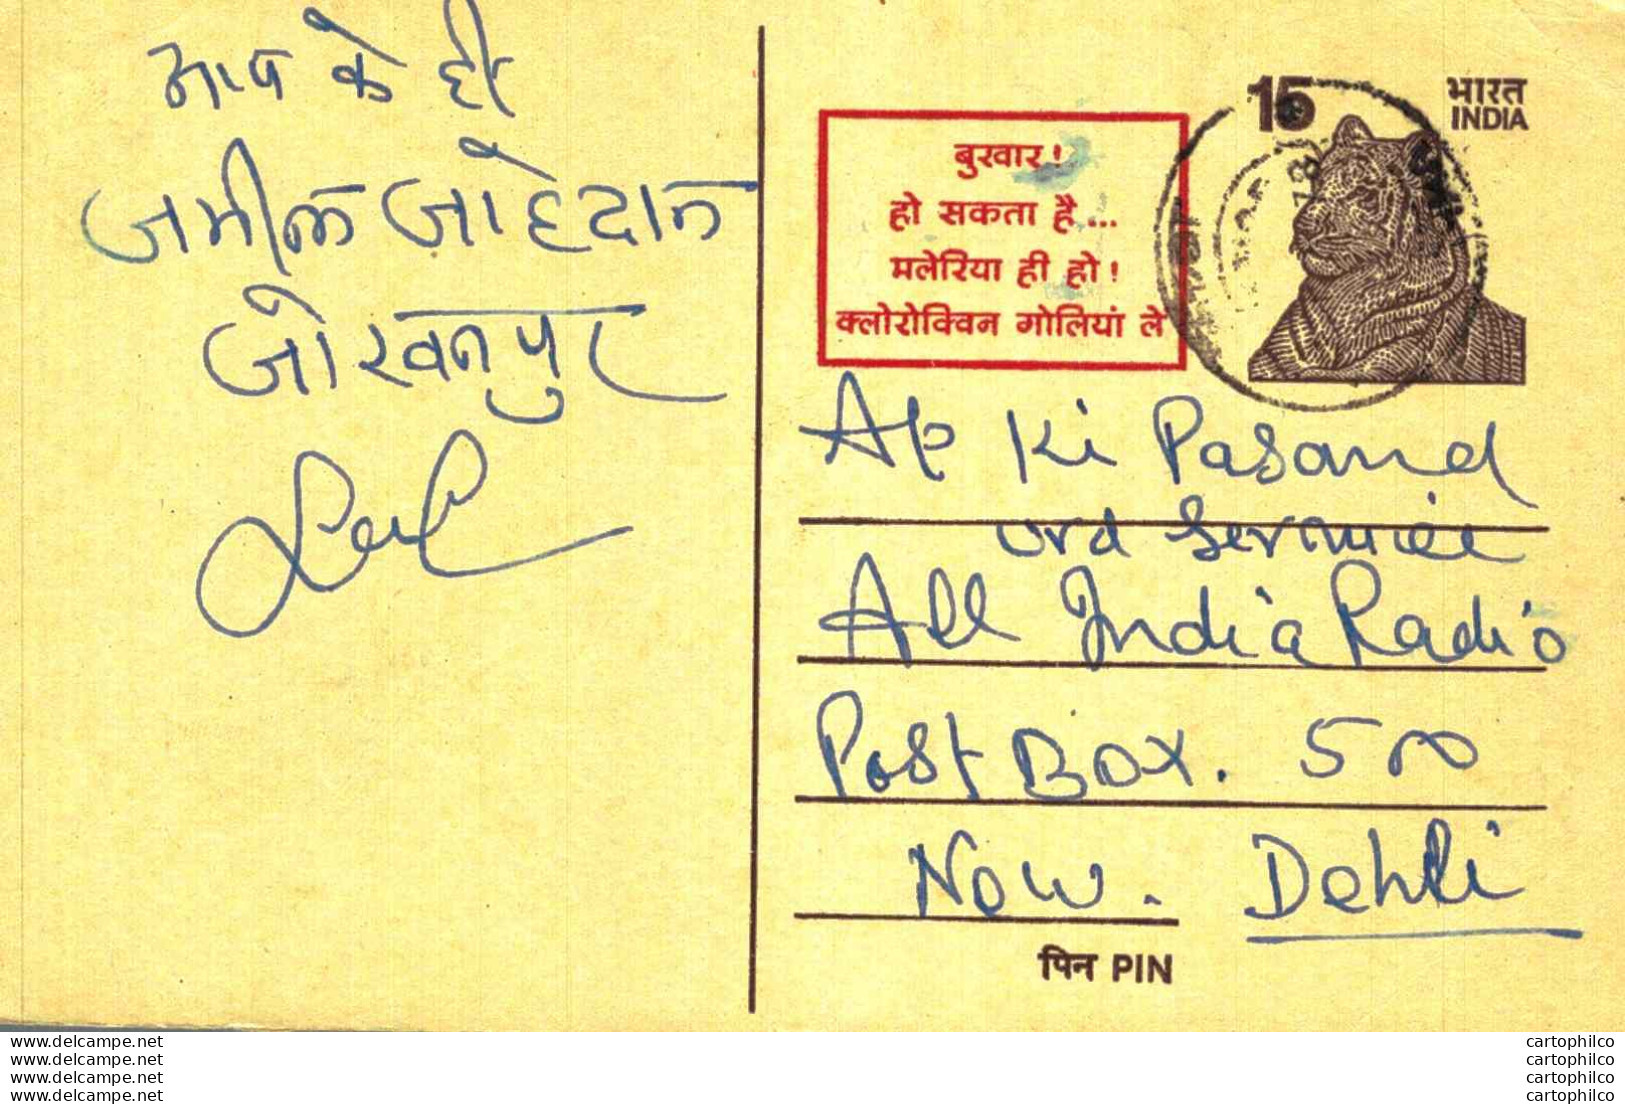 आप के ही
जमील
जोखनपुर
15
भारत
INDIA
बुखार!
हो सकता है...
मलेरिया ही हो!
क्लोरोक्विन गोलियां लें
Ap Ki Pasand
urd Service
All India Radio
Post Box. 500
New. Dehli
पिन PIN
www.delcampe.net
www.delcampe.net
www.delcampe.net
www.delcampe.net
cartophilco
cartophilco
cartophilco
cartophilco